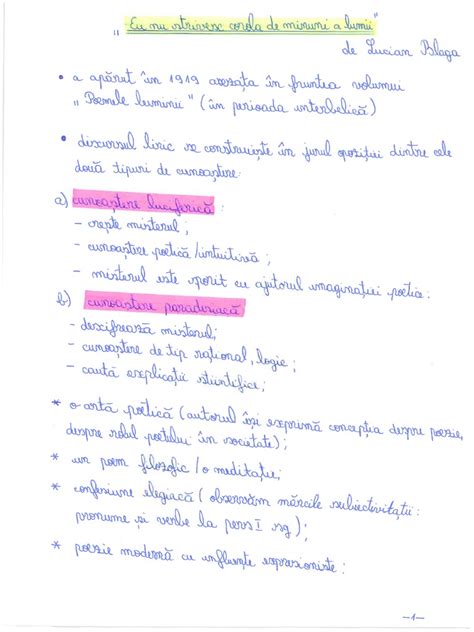 „Eu nu strivesc corola de minuni a lumii”
de Lucian Blaga
• a apărut în 1919 așezată în fruntea volumui
„Poemele luminii” (în perioada interbelică)
• discursul liric se construiește în jurul opoziției dintre cele
două tipuri de cunoaștere:
a) cunoaștere luciferică :
- crește misterul ;
- cunoaștere poetică/intuitivă ;
- misterul este sporit cu ajutorul imaginației poetice.
b) cunoaștere paradisiacă
- descifrează misterul;
- cunoaștere de tip rațional, logic ;
- caută explicații stiintifice ;
* o artă poetică (autorul își exprimă concepția despre poezie,
despre rolul poetului în societate) ;
* un poem filozofic /o meditație;
* confesiune elegiacă ( observăm mărcile subiectivitatii:
pronume și verbe la pers I sg ) ;
* poezie modernă cu influențe expresioniste :
-1-